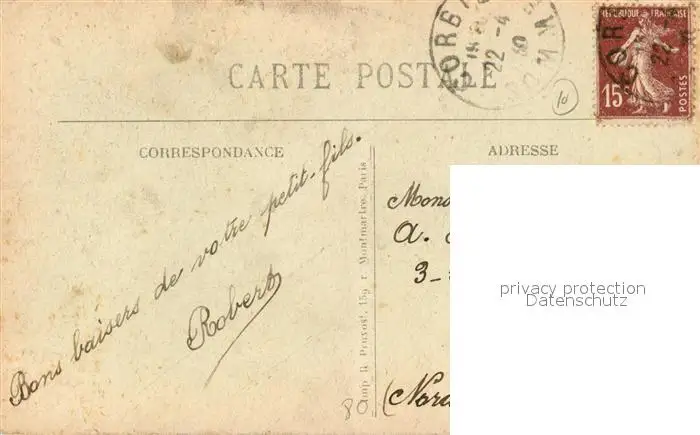 CARTE POSTALE
RÉPUBLIQUE FRANÇAISE
15
POSTES
22 - 4
30
10
CORRESPONDANCE
ADRESSE
Bons baisers de votre petit-fils.
Robert
159 r. Montmartre, Paris
80
A.
3-
(Nord
privacy protection
Datenschutz